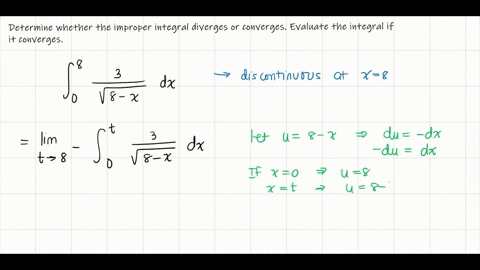 Determine whether the improper integral diverges or converges. Evaluate the integral if
it converges.
∫₀⁸ 3/√(8-x) dx → discontinuous at x=8
= lim t→8⁻ ∫₀ᵗ 3/√(8-x) dx
let u = 8-x ⇒ du = -dx
-du = dx
If x=0 ⇒ u=8
x=t ⇒ u=8-